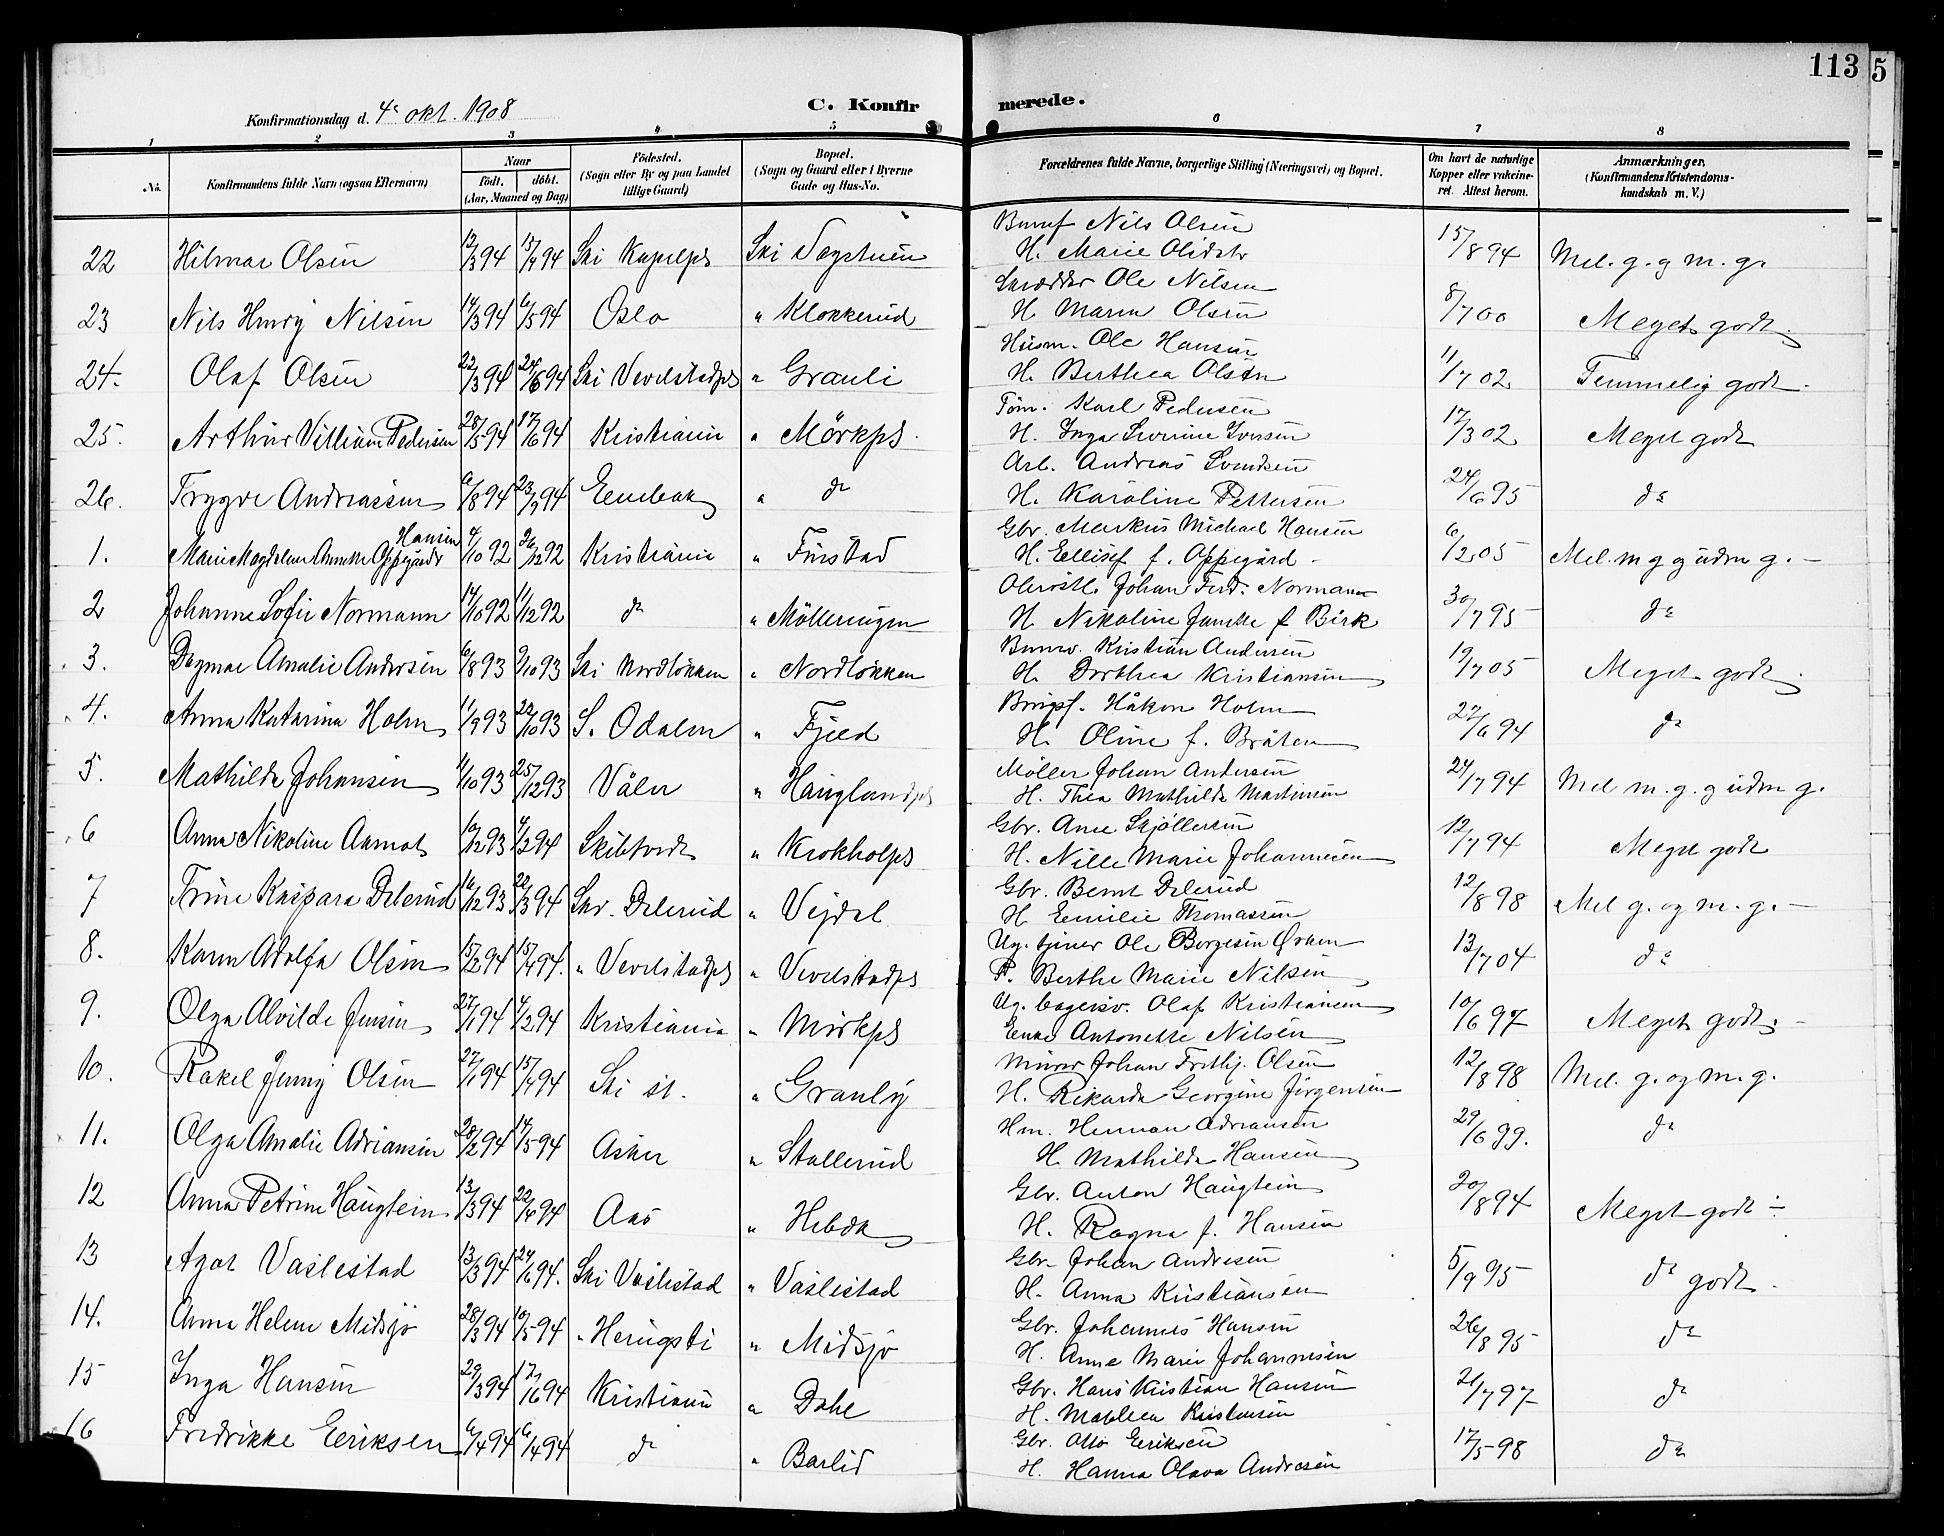 113 5
Konfirmationsdag d. 4de okt. 1908
C. Konfirmerede.
1 2 3 4 5 6 7 8
No.
Konfirmandens fulde Navn (ogsaa Efternavn)
Naar
födt. döbt.
(Aar, Maaned og Dag)
Födested.
(Sogn eller By og paa Landet
tillige Gaard)
Bopæl.
(Sogn og Gaard eller i Byerne
Gade og Hus-No.
Forældrenes fulde Navne, borgerlige Stilling (Næringsvei) og Bopæl.
Om havt de naturlige
Kopper eller vakcine-
ret. Attest herom.
Anmærkninger.
(Konfirmandens Kristendoms-
kundskab m. V.)
22 Hilmar Olsen 12/3 94 15/4 94 Ski Ski Nils Olsen
H. Marie 15/8 94 Mel. g. og m. g.
23 Nils Henry Nilsen 14/3 94 6/5 94 Oslo " Klokkerud Skrædder Ole Nilsen
H. Maren Olsen 8/7 00 Meget godt.
24. Olaf Olsen 22/3 94 24/6 94 Ski Vevelstadpl " Granli Husm. Ole Hansen
H. Berthea Olsen 11/7 02 Temmelig godt.
25. Arthur Villiam Pedersen 28/5 94 17/6 94 Kristiania " Mörkpl. Töm. Karl Pedersen
H. Inga Severine Iversen 17/3 02 Meget godt
26. Trygve Andreassen 6/8 94 23/9 94 Enebak " do Arb. Andreas Svendsen
H. Karoline Pettersen 24/6 95 do
1. Marie Magdalene Annette Oppegård Hansen 4/10 92 26/12 92 Kristiania " Finstad Gbr. Markus Michael Hansen
H. Ellisef f. Oppegård 6/2 05 Mel. m g og udm g.
2 Johanne Sofie Normann 14/10 92 11/12 92 do " Mölleringen Johan Ferd. Normann
H. Nikoline Janette f Birk 30/7 95 do
3. Dagmar Amalie Andersen 6/8 93 9/10 93 Ski Nordlökken " Nordlökken Kristian Andersen
H. Dorthea Kristiansen 19/7 05 Meget godt.
4. Anna Katarina Holm 11/9 93 22/10 93 S. Odalen " Fjeld Håkon Holm
H. Oline f. Bråten 27/6 94 do
5. Mathilde Johansen 11/10 93 25/12 93 Våler " Hauglandpl Möller Johan Andersen
H. Thea Mathilde Martinsen 24/7 94 Mel m. g. og udm g.
6 Anna Nikoline Aamot 10/12 93 4/2 94 Skibtvedt " Krokholpl Gbr. Ane Skjöllersen
H. Nille Marie Johannesen 12/7 94 Meget godt
7 Trine Kaspara Delerud 16/12 93 22/3 94 Skr. Delerud " Vejdal Gbr. Bernt Delerud
H Emilie Thomassen 12/8 98 Mel g. og m. g.
8. Karen Adolfa Olsen 15/2 94 15/4 94. " Vevelstadpl " Vevelstadpl Ug. tjener Ole Borgesen
P. Berthe Marie Nilsen 13/7 04 do
9. Olga Alvilde Jensen 27/1 94 4/2 94 Kristiania " Mörkpl Ug. bagersv. Olaf Kristiansen
Enke Antonette Nilsen 10/6 97 Meget godt.
10. Rakel Jenny Olsen 27/1 94 15/4 94 Ski st. " Granly Murer Johan Frithj. Olsen
H. Rikarda Georgine Jörgensen 12/8 98 Mel. g. og m. g.
11. Olga Amalie Adriansen 28/2 94 14/5 94 Asker " Stallerud Hm. Herman Adriansen
H. Mathilde Hansen 29/6 99. do
12 Anna Petrine Haugtein 13/3 94 22/4 94 Aas " Hebæk Gbr. Anton Haugtein
H. Ragna f. Hansen 20/8 94 Meget godt
13 Agot Vaslestad 13/3 94 24/6 94. Ski Vaslestad " Vaslestad Gbr. Johan Andresen
H. Anna Kristiansen 5/9 95 do godt.
14. Anna Helene Midsjö 28/3 94 10/5 94 " Herugsti " Midsjö Gbr. Johannes Hansen
H. Anne Marie Johannesen 26/8 95 do
15 Inga Hansen 29/3 94 17/6 94 Kristiania " Dahl Gbr. Hans Kristian Hansen
H. Mathea Kristensen 21/7 97 do
16 Fredrikke Eriksen 6/4 94 6/4 94 do " Barlid Gbr. Otto Eriksen
H. Hanna Olava Andresen 17/5 98 do